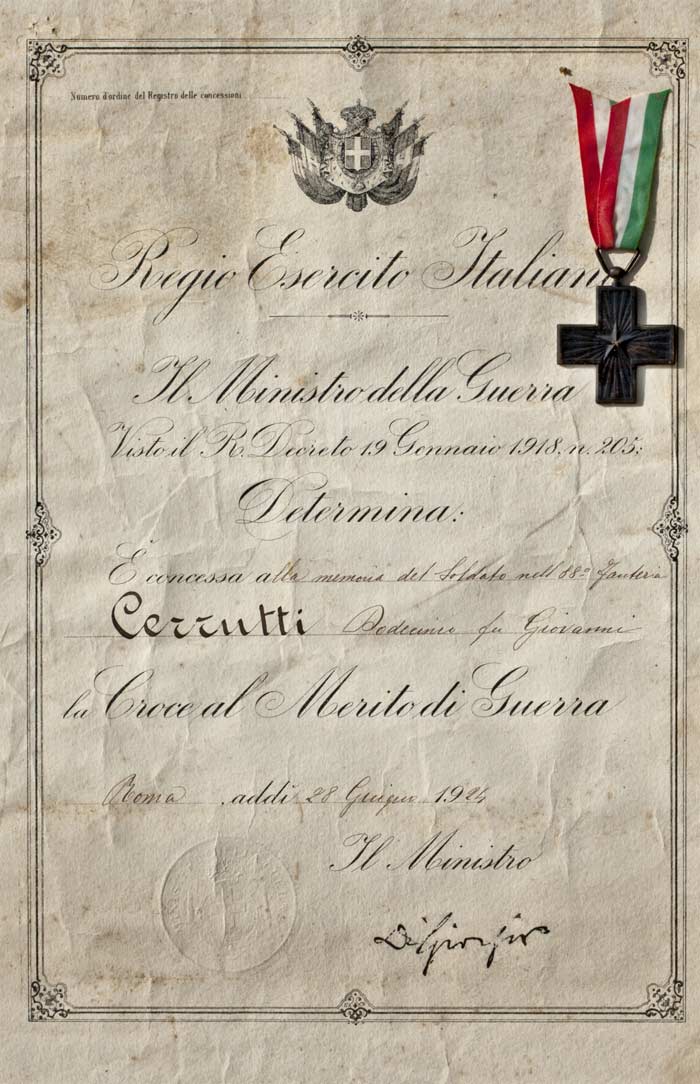 Numero d'ordine del Registro delle concessioni
Regio Esercito Italian
Il Ministro della Guerra
Visto il R. Decreto 19 Gennaio 1918, n. 205;
Determina:
È concessa alla memoria del Soldato nell' 88º Fanteria
Cerrutti fu Giovanni
la Croce al Merito di Guerra
Roma, addì 28 Giugno 1924
Il Ministro